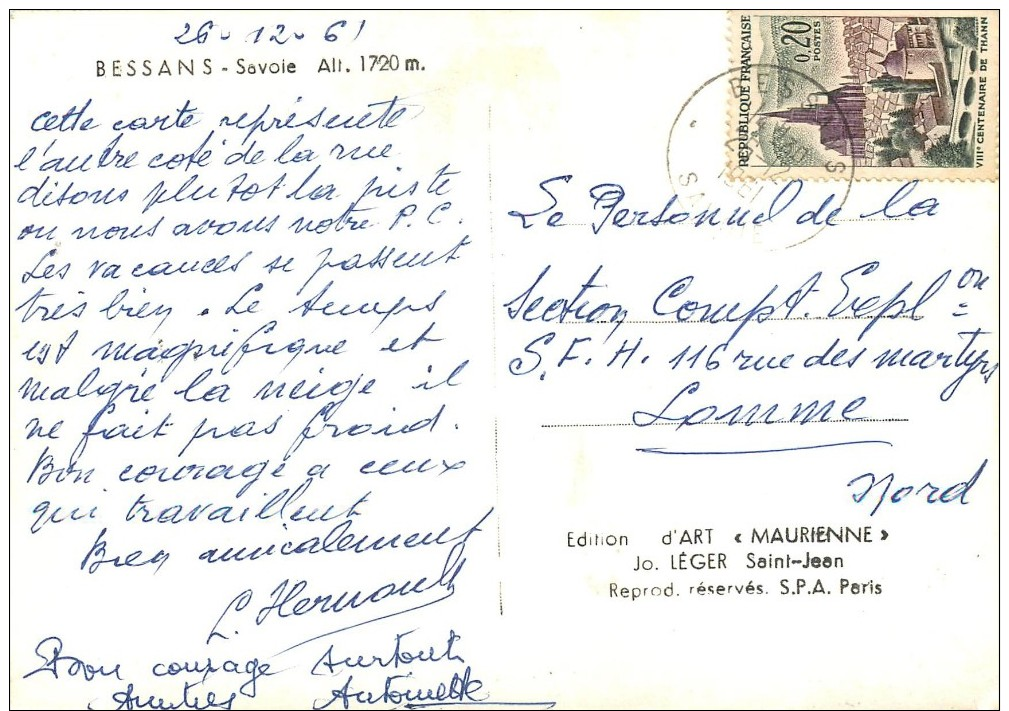 26-12-61
BESSANS - Savoie Alt. 1720 m.
cette carte représente
l'autre coté de la rue
disons plutot la piste
ou nous avons notre P.C.
Les vacances se passent
très bien. Le temps
est magnifique et
malgré la neige il
ne fait pas froid.
Bon courage a ceux
qui travaillent
Bien amicalement
L. Hernoult
Bon courage surtout
Amitiés Antoinette
RÉPUBLIQUE FRANÇAISE
0,20
POSTES
VIIIe CENTENAIRE DE THANN
BESSANS
12
1961
Le Personnel de la
Section Compt. Expl on
S.F.H. 116 rue des martyrs
Lomme
Nord
Edition d'ART « MAURIENNE »
Jo. LÉGER Saint-Jean
Reprod. réservés. S.P.A. Paris